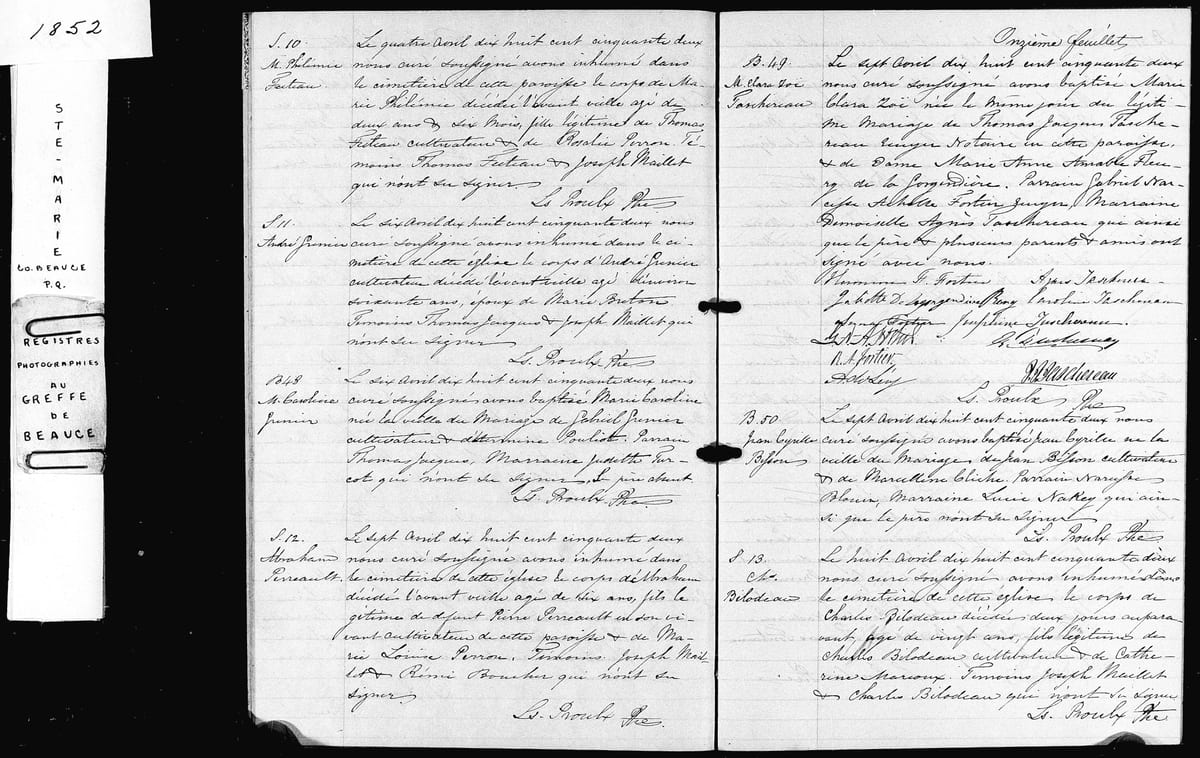 1852
STE-MARIE
CO. BEAUCE
P.Q.
REGISTRES
PHOTOGRAPHIES
AU
GREFFE
DE
BEAUCE
S. 10.
M. Philémie
Feuteau.
Le quatre avril dix huit cent cinquante deux
nous curé soussigné avons inhumé dans
le cimetière de cette paroisse le corps de Ma-
rie Philémie décédée l'avant veille agé de
deux ans & six mois, fille légitime de Thomas
Feuteau cultivateur & de Rosalie Perron. Té-
moins Thomas Feuteau & Joseph Maillet
qui n'ont su signer
Ls. Proulx Ptre
S. 11.
André Grenier
Le six avril dix huit cent cinquante deux nous
curé soussigné avons inhumé dans le ci-
metière de cette église le corps d'André Grenier
cultivateur décédé l'avant veille agé d'environ
soixante ans, époux de Marie Breton
Témoins Thomas Jacques & Joseph Maillet qui
n'ont su signer
Ls. Proulx Ptre
B 48
M. Caroline
Grenier
Le six avril dix huit cent cinquante deux nous
curé soussigné avons baptisé Marie Caroline
née la veille du Mariage de Gabriel Grenier
cultivateur & Pouliot. Parrain
Thomas Jacques, Marraine Judith Tur-
cot qui n'ont su signer, le père absent
Ls. Proulx Ptre
S. 12.
Abraham
Perreault.
Le sept avril dix huit cent cinquante deux
nous curé soussigné avons inhumé dans
le cimetière de cette église le corps de Abraham
décédé l'avant veille agé de dix ans, fils lé-
gitime de défunt Pierre Perreault en son vi-
vant cultivateur de cette paroisse & de Ma-
rie Louise Perron. Témoins Joseph Mail-
let & Rémi Boucher qui n'ont su
signer
Ls. Proulx Ptre.
Onzième feuillet
B. 49
M. Clara Zoë
Taschereau
Le sept avril dix huit cent cinquante deux
nous curé soussigné avons baptisé Marie
Clara Zoë née le même jour du légiti-
me Mariage de Thomas Jacques Tasche-
reau Ecuyer Notaire en cette paroisse.
& de Dame Marie Anne Amable Fleu-
ry de la Gorgendière. Parrain Gabriel Nar-
cisse Achille Fortier Ecuyer, Marraine
Demoiselle Agnès Taschereau qui ainsi
que le père & plusieurs parents & amis ont
signé avec nous
T. Fortier Agnès Taschereau
Caroline Taschereau
Fortier Joséphine Taschereau.
G. N. A. Fortier
R. A. Fortier
T. J. Taschereau
Ls. Proulx Ptre
B. 50
Jean Cyrille
Bisson
Le sept avril dix huit cent cinquante deux nous
curé soussigné avons baptisé Jean Cyrille né la
veille du Mariage de Jean Bisson cultivateur
& de Marcelline Cliche. Parrain Narcisse
Blouin, Marraine Lucie Nakey, qui ain-
si que le père n'ont su signer
Ls. Proulx Ptre
S. 13.
Chs
Bilodeau
Le huit avril dix huit cent cinquante deux
nous curé soussigné avons inhumé dans
le cimetière de cette église le corps de
Charles Bilodeau décédé deux jours aupara-
vant, agé de vingt ans, fils légitime de
Charles Bilodeau cultivateur & de Cathe-
rine Marcoux. Témoins Joseph Maillet
& Charles Bilodeau qui n'ont su signer
Ls. Proulx Ptre